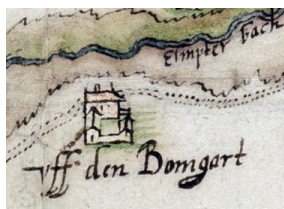 Elmpter bach
vff den Bomgart